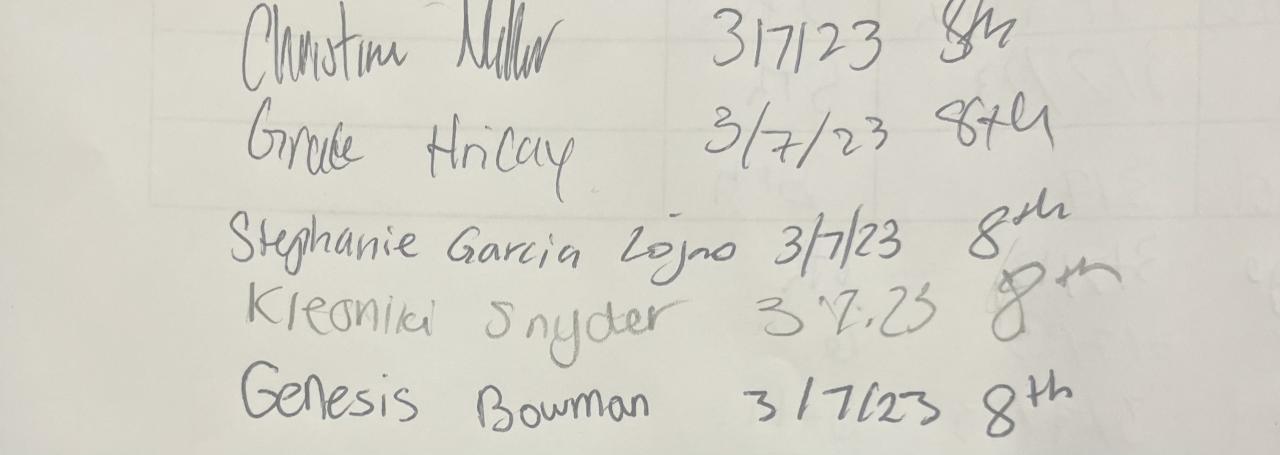 Christina Miller 3/7/23 8th
Grace Hricay 3/7/23 8th
Stephanie Garcia 3/7/23 8th
Snyder 3.7.23 8th
Genesis Bowman 3/7/23 8th